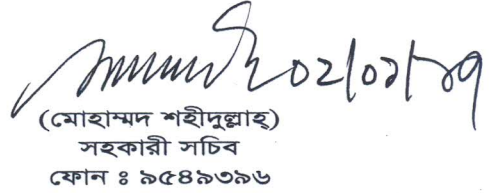 ০২/০১/১৭
(মোহাম্মদ শহীদুল্লাহ্)
সহকারী সচিব
ফোন ঃ ৯৫৪৯৩৯৬